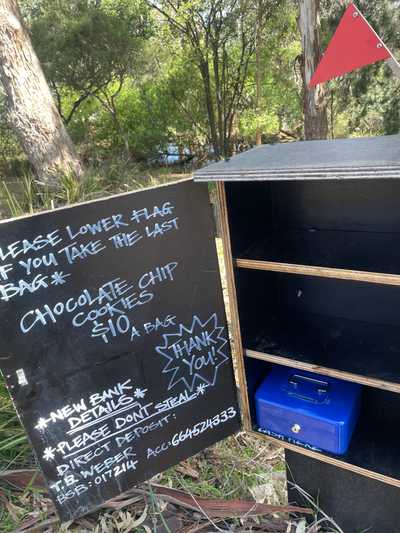 PLEASE LOWER FLAG
IF YOU TAKE THE LAST
BAG*
CHOCOLATE CHIP
COOKIES
$10 A BAG
THANK
YOU!
*NEW BANK
DETAILS*
*PLEASE DONT STEAL*
DIRECT DEPOSIT:
T.B WEBER
BSB: 017214 ACC: 664524333